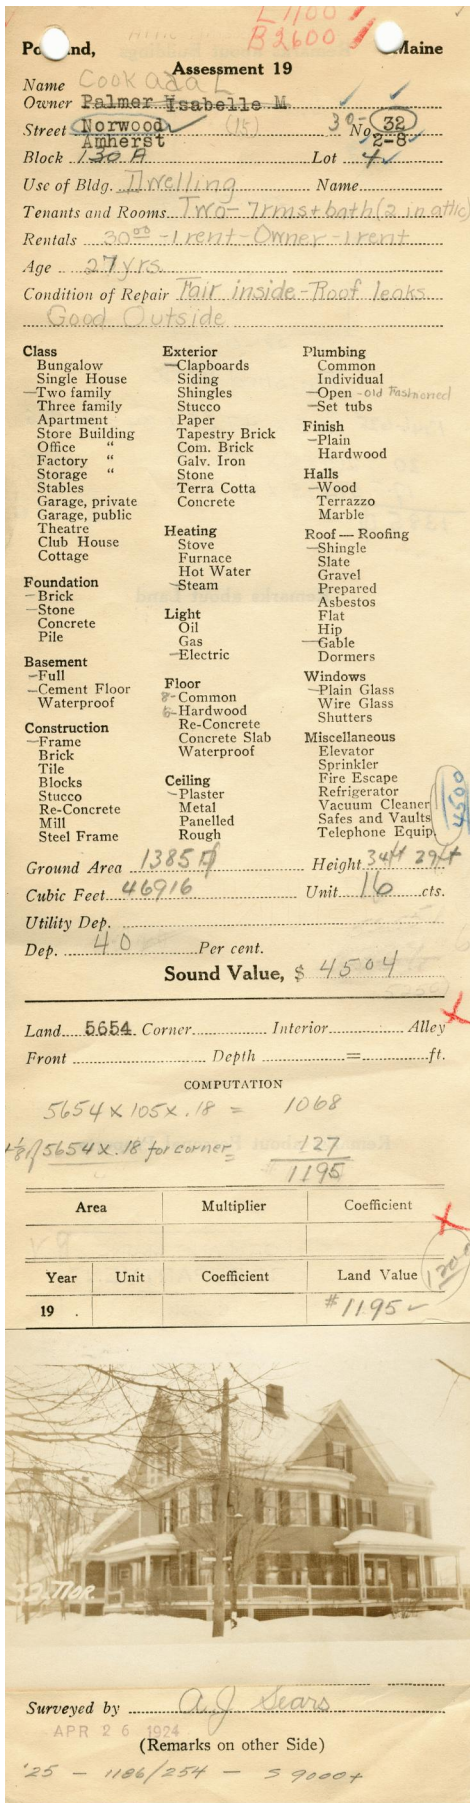 L 1100
B 2600
Portland, Maine
Assessment 19
Name Cook Ada L
Owner Palmer Isabelle M.
Street Norwood (15) 30- No. 32
Amherst 2-8
Block 130 A Lot 4
Use of Bldg. Dwelling Name
Tenants and Rooms Two - 7rms + bath (2 in attic)
Rentals 30⁰⁰ - 1 rent - Owner - 1 rent
Age 27 yrs.
Condition of Repair Fair inside - Roof leaks
Good Outside
Class
Bungalow
Single House
Two family
Three family
Apartment
Store Building
Office "
Factory "
Storage "
Stables
Garage, private
Garage, public
Theatre
Club House
Cottage
Foundation
Brick
Stone
Concrete
Pile
Basement
Full
Cement Floor
Waterproof
Construction
Frame
Brick
Tile
Blocks
Stucco
Re-Concrete
Mill
Steel Frame
Exterior
Clapboards
Siding
Shingles
Stucco
Paper
Tapestry Brick
Com. Brick
Galv. Iron
Stone
Terra Cotta
Concrete
Heating
Stove
Furnace
Hot Water
Steam
Light
Oil
Gas
Electric
Floor
8- Common
6- Hardwood
Re-Concrete
Concrete Slab
Waterproof
Ceiling
Plaster
Metal
Panelled
Rough
Plumbing
Common
Individual
Open - old Fashioned
Set tubs
Finish
Plain
Hardwood
Halls
Wood
Terrazzo
Marble
Roof — Roofing
Shingle
Slate
Gravel
Prepared
Asbestos
Flat
Hip
Gable
Dormers
Windows
Plain Glass
Wire Glass
Shutters
Miscellaneous
Elevator
Sprinkler
Fire Escape
Refrigerator
Vacuum Cleaner
Safes and Vaults
Telephone Equip.
4500
Ground Area 1385 Height 34ft 29ft
Cubic Feet 46916 Unit 16 cts.
Utility Dep.
Dep. 40 Per cent.
Sound Value, $ 4504
Land 5654 Corner Interior Alley
Front Depth = ft.
COMPUTATION
5654 x 105 x .18 = 1068
1/8 of 5654 x .18 for corner = 127
$ 1195
Area Multiplier Coefficient
Year Unit Coefficient Land Value
19 . #1195
1200
32 NOR.
Surveyed by A J Sears
APR 26 1924
(Remarks on other Side)
'25 - 1186/254 - $ 9000+